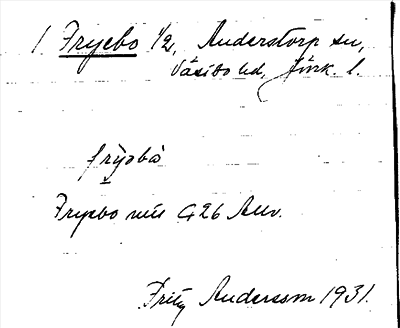 1 Fryebo 1/2, Anderstorp sn,
Västbo hd, Jönk. l.
frỳəbo
Fryebo G26 Anv.
Fritz Andersson 1931.